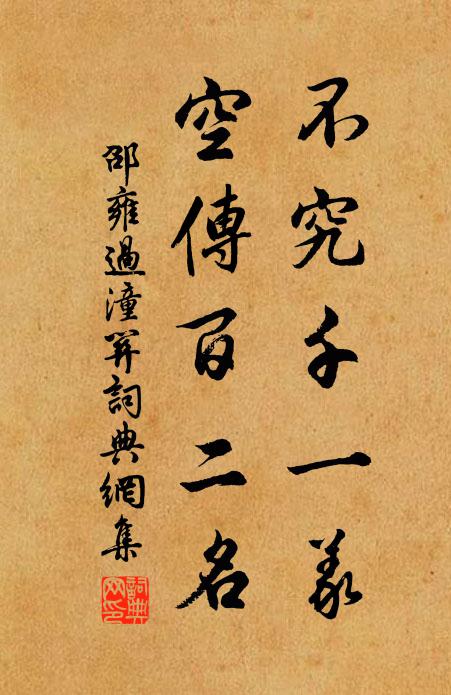 不究千一義
空傳百二名
邵雍過潼關詞典網集
詞典
网印